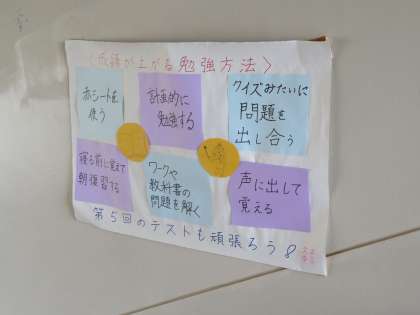 〈成績が上がる勉強方法〉
赤シートを
使う
計画的に
勉強する
クイズみたいに
問題を
出し合う
寝る前に覚えて
朝復習する
ワークや
教科書の
問題を解く
声に出して
覚える
第5回のテストも頑張ろう